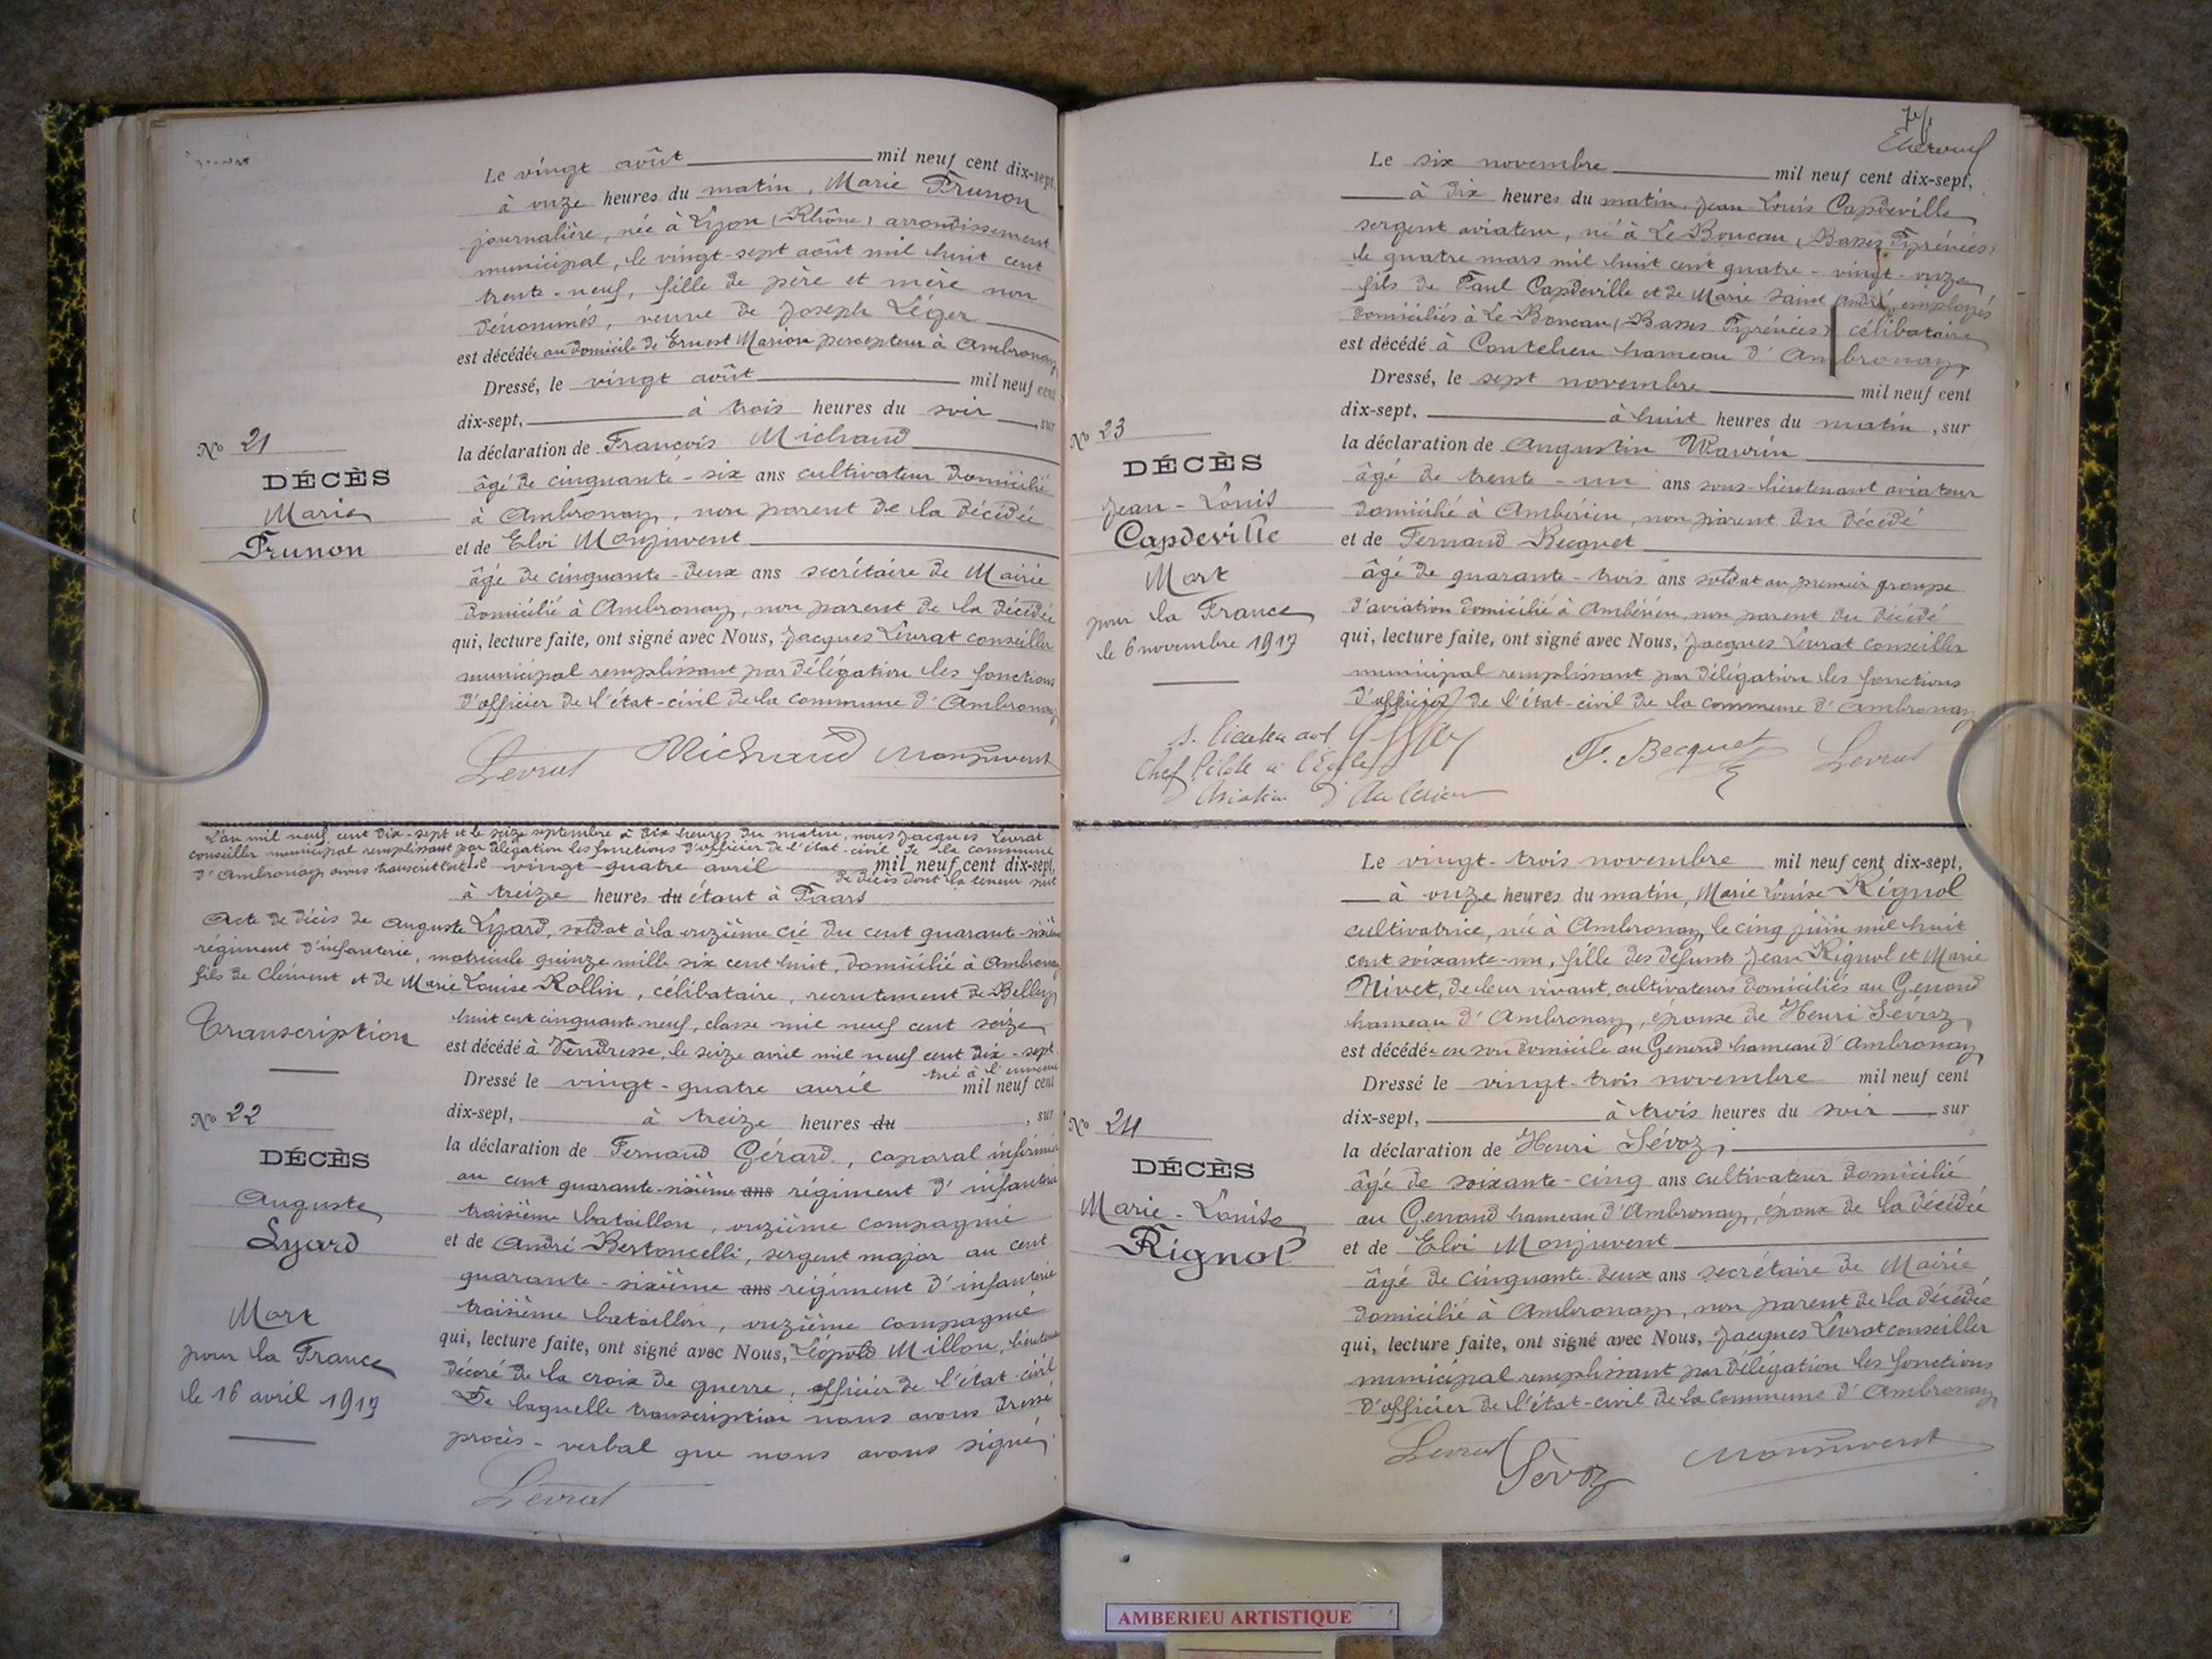 Le vingt août mil neuf cent dix-sept,
à onze heures du matin, Marie Prunon
journalière, née à Lyon (Rhône) arrondissement
municipal, le vingt-sept août mil huit cent
trente-neuf, fille de père et mère non
dénommés, veuve de Joseph Léger
est décédée au domicile de Ernest Marion percepteur à Ambronay
Dressé, le vingt août mil neuf cent
dix-sept, à trois heures du soir, sur
la déclaration de François Michaud
âgé de cinquante-six ans cultivateur domicilié
à Ambronay, non parent de la décédée
et de Eloi Monjuvent
âgé de cinquante-deux ans secrétaire de Mairie
domicilié à Ambronay, non parent de la décédée
qui, lecture faite, ont signé avec Nous, Jacques Levrat conseiller
municipal remplissant par délégation les fonctions
d'officier de l'état-civil de la commune d'Ambronay
Levrat Michaud Monjuvent
No 21
DÉCÈS
Marie
Prunon
L'an mil neuf cent dix-sept et le seize septembre à dix heures du matin, nous Jacques Levrat
conseiller municipal remplissant par délégation les fonctions d'officier de l'état-civil de la commune
d'Ambronay avons transcrit l'acte de décès dont la teneur suit
Le vingt-quatre avril mil neuf cent dix-sept,
à treize heures du étant à Paars
Acte de décès de Auguste Lyard, soldat à la onzième cie du cent quarante-sixième
régiment d'infanterie, matricule quinze mille six cent huit, domicilié à Ambronay
fils de Clément et de Marie Louise Rollin, célibataire, recrutement de Belley,
huit cent cinquante neuf, classe mil neuf cent seize
est décédé à Vendresse, le seize avril mil neuf cent dix-sept
tué à l'ennemi
Dressé le vingt-quatre avril mil neuf cent
dix-sept, à treize heures du , sur
la déclaration de Fernand Gérard, caporal infirmier
au cent quarante-sixième ans régiment d'infanterie
troisième bataillon, onzième compagnie
et de André Bertoncelli, sergent major au cent
quarante-sixième ans régiment d'infanterie
troisième bataillon, onzième compagnie
qui, lecture faite, ont signé avec Nous, Léopold Millon, lieutenant
décoré de la croix de guerre, officier de l'état-civil
De laquelle transcription nous avons dressé
procès-verbal que nous avons signé,
Levrat
Transcription
No 22
DÉCÈS
Auguste
Lyard
Mort
pour la France
le 16 avril 1917
Le six novembre mil neuf cent dix-sept,
à dix heures du matin, Jean Louis Capdeville
sergent aviateur, né à Le Boucau (Basses Pyrénées)
le quatre mars mil huit cent quatre-vingt-onze
fils de Paul Capdeville et de Marie Saint André, employés
domiciliés à Le Boucau (Basses Pyrénées) célibataire
est décédé à Coutelieu hameau d'Ambronay,
Dressé, le sept novembre mil neuf cent
dix-sept, à huit heures du matin, sur
la déclaration de Augustin Wavrin
âgé de trente-un ans sous-lieutenant aviateur
domicilié à Ambérieu, non parent du décédé
et de Fernand Becquet
âgé de quarante-trois ans soldat au premier groupe
d'aviation domicilié à Ambérieu, non parent du décédé
qui, lecture faite, ont signé avec Nous, Jacques Levrat conseiller
municipal remplissant par délégation les fonctions
d'officier de l'état-civil de la commune d'Ambronay
s. lieutenant
Chef Pilote à l'Ecole
d'Aviation d'Ambérieu
F. Becquet Levrat
No 23
DÉCÈS
Jean-Louis
Capdeville
Mort
pour la France
le 6 novembre 1917
Le vingt-trois novembre mil neuf cent dix-sept,
à onze heures du matin, Marie Louise Rignol
cultivatrice, née à Ambronay, le cinq juin mil huit
cent soixante-un, fille des défunts Jean Rignol et Marie
Nivet, de leur vivant, cultivateurs domiciliés au Genoud
hameau d'Ambronay, épouse de Henri Sévoz,
est décédée en son domicile au Genoud hameau d'Ambronay
Dressé le vingt-trois novembre mil neuf cent
dix-sept, à trois heures du soir, sur
la déclaration de Henri Sévoz,
âgé de soixante-cinq ans cultivateur domicilié
au Genoud hameau d'Ambronay, époux de la décédée
et de Eloi Monjuvent
âgé de cinquante-deux ans secrétaire de Mairie
domicilié à Ambronay, non parent de la décédée
qui, lecture faite, ont signé avec Nous, Jacques Levrat conseiller
municipal remplissant par délégation les fonctions
d'officier de l'état-civil de la commune d'Ambronay
Levrat Sévoz Monjuvent
No 24
DÉCÈS
Marie-Louise
Rignol
AMBERIEU ARTISTIQUE